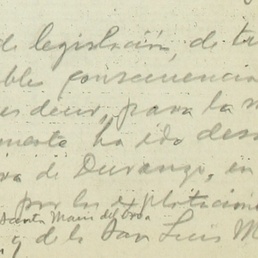 de legislación, de tr
bles consecuencia
es decir, para la m
mente ha ido des
ra de Durango, en
por las explotacion
Santa María del Oro
y de la San Luis M